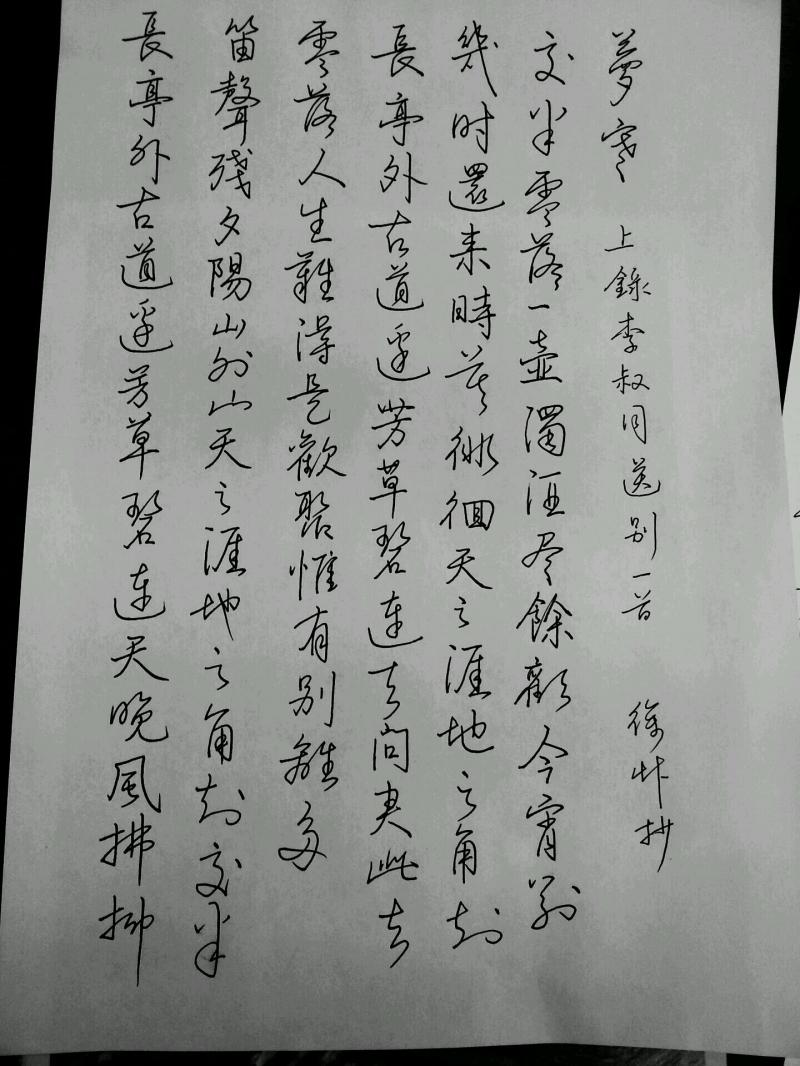 長亭外古道邊芳草碧連天晚風拂柳
笛聲殘夕陽山外山天之涯地之角知交半
零落人生難得是歡聚惟有别離多
長亭外古道邊芳草碧連天問君此去
幾时還来時莫徘徊天之涯地之角知
交半零落一壺濁酒尽餘歡今宵别
夢寒 上錄李叔同送别一首 徐抄